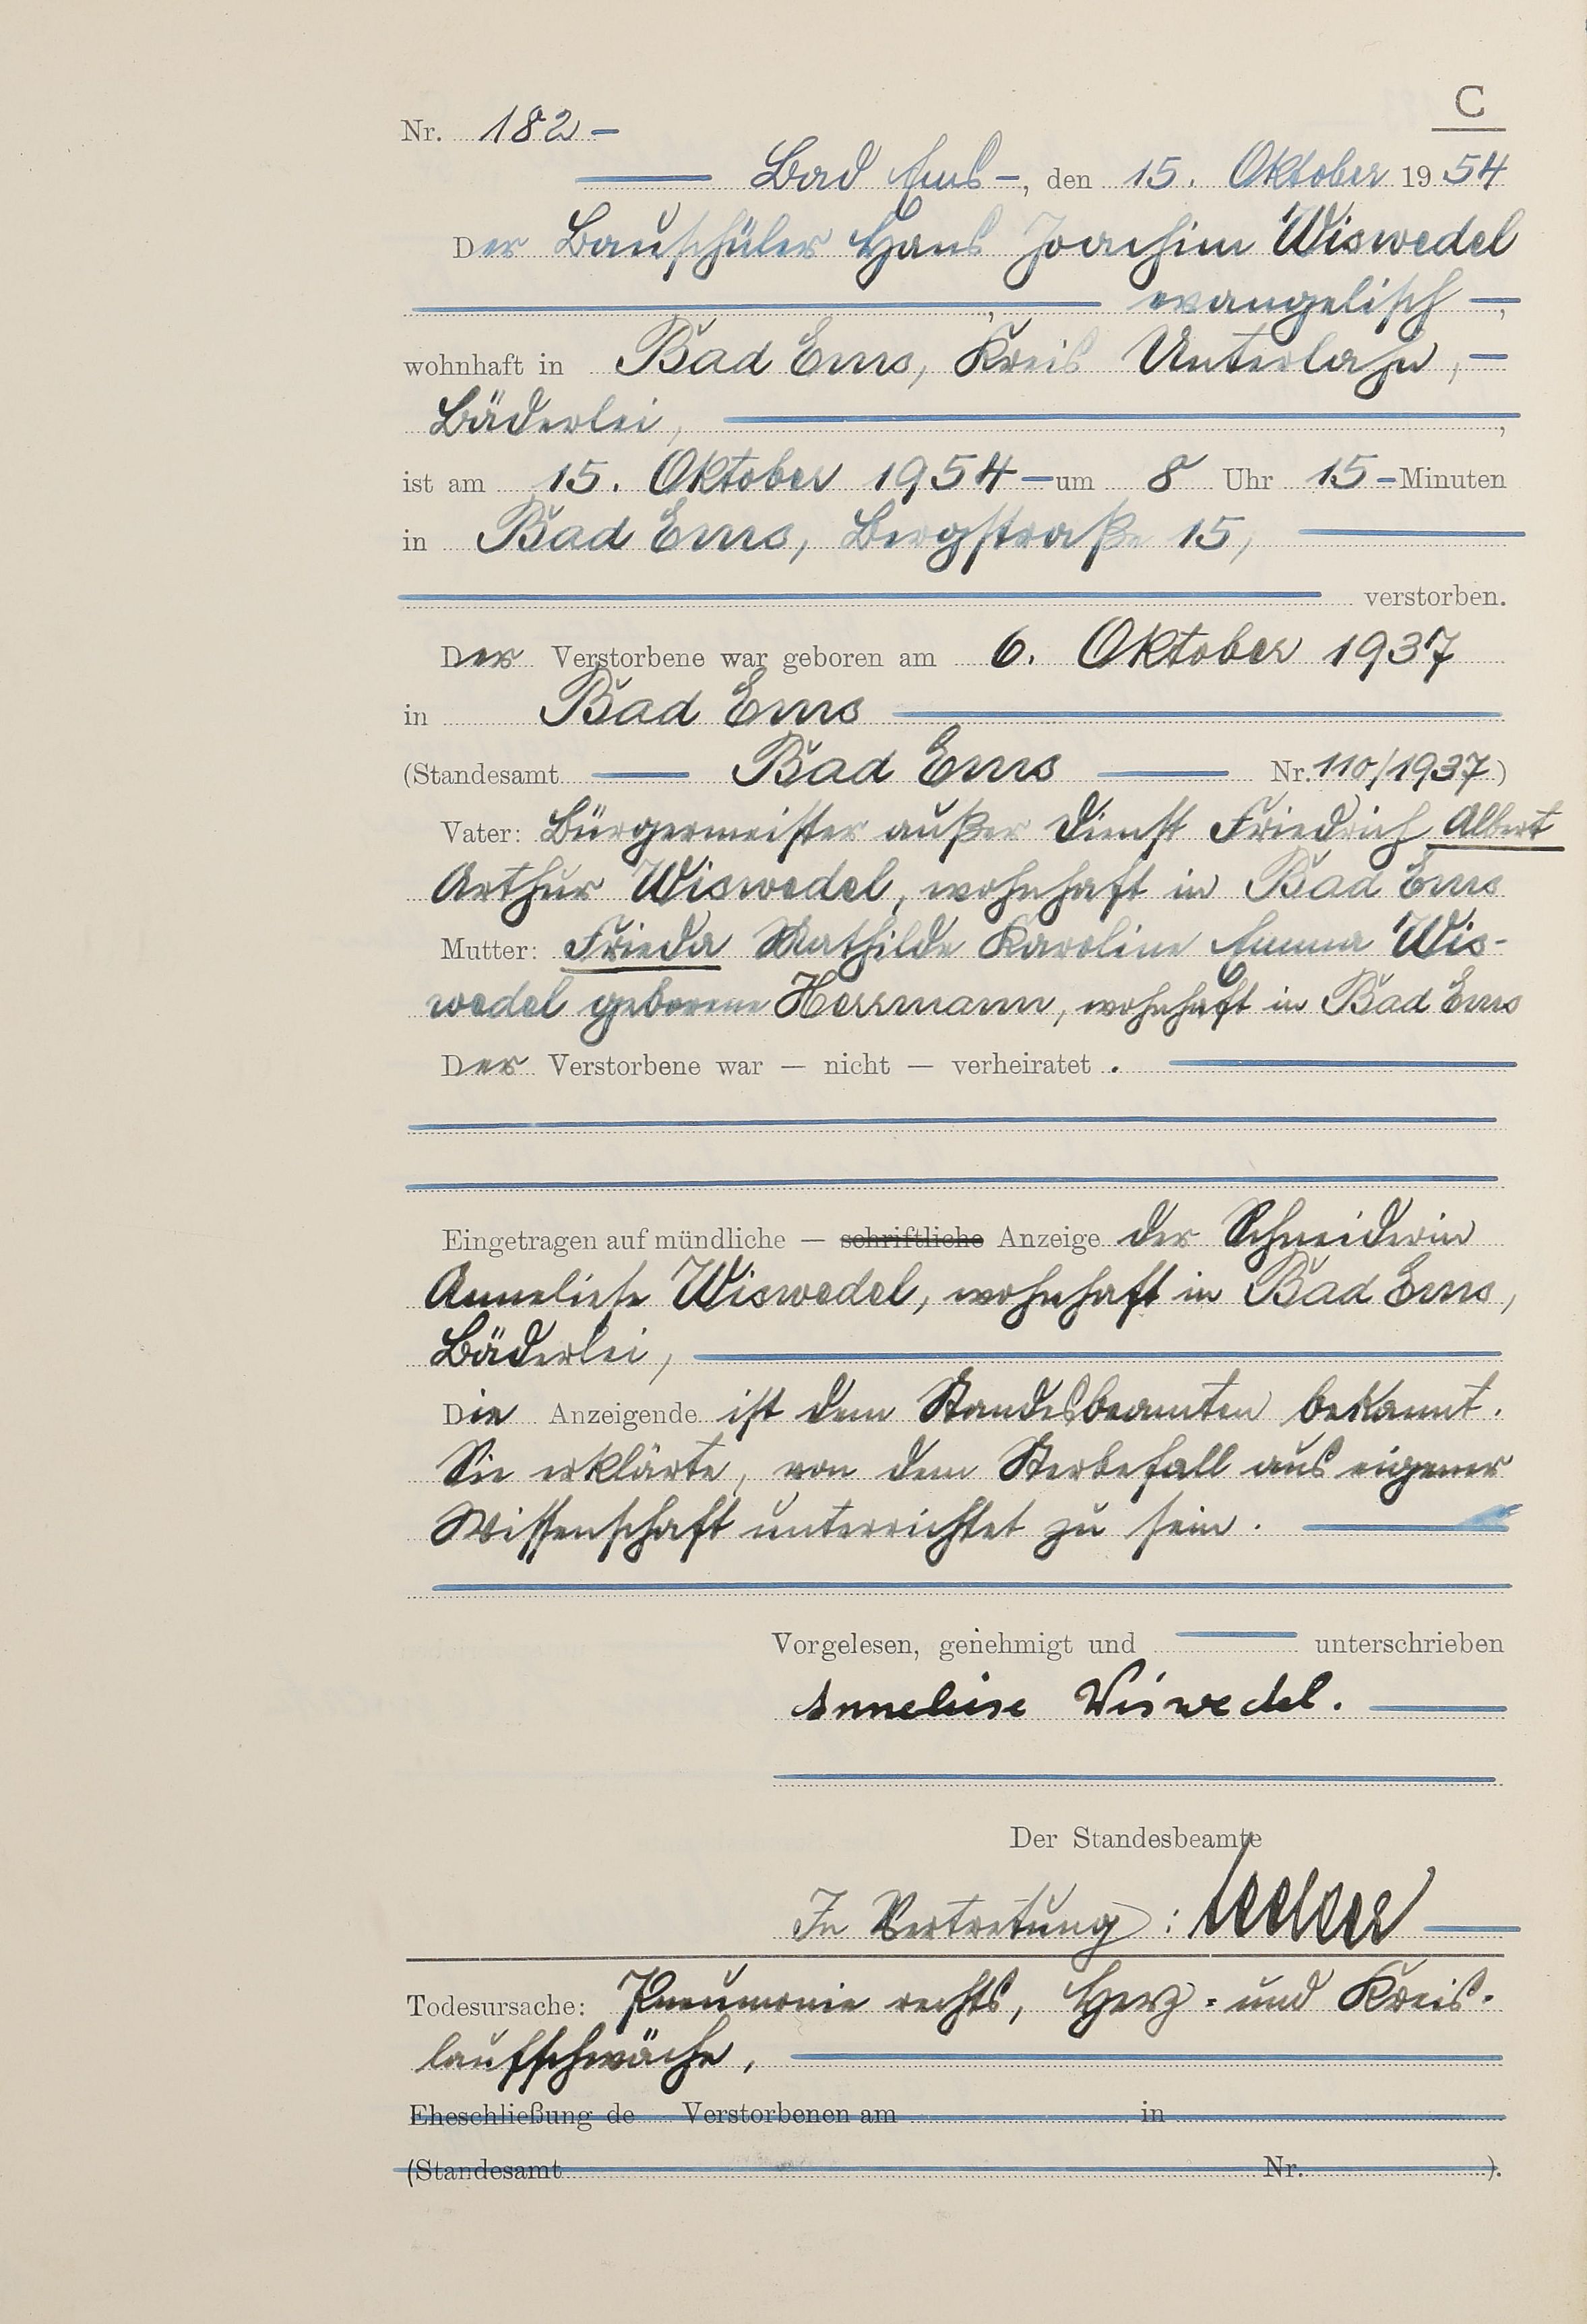 C
Nr. 182 –
Bad Ems –, den 15. Oktober 1954
Der Bauschüler Hans Joachim Wiswedel
, evangelisch –,
wohnhaft in Bad Ems, Kreis Unterlahn, –
Bäderlei, ,
ist am 15. Oktober 1954 – um 8 Uhr 15 – Minuten
in Bad Ems, Bergstraße 15,
verstorben.
Der Verstorbene war geboren am 6. Oktober 1937
in Bad Ems
(Standesamt Bad Ems Nr. 110/1937)
Vater: Bürgermeister außer Dienst Friedrich Albert
Arthur Wiswedel, wohnhaft in Bad Ems
Mutter: Frieda Mathilde Karoline Emma Wis-
wedel geborene Herrmann, wohnhaft in Bad Ems
Der Verstorbene war — nicht — verheiratet.
Eingetragen auf mündliche — schriftliche Anzeige der Schneiderin
Anneliese Wiswedel, wohnhaft in Bad Ems,
Bäderlei,
Die Anzeigende ist dem Standesbeamten bekannt.
Sie erklärte, von dem Sterbefall aus eigener
Wissenschaft unterrichtet zu sein.
Vorgelesen, genehmigt und unterschrieben
Anneliese Wiswedel.
Der Standesbeamte
In Vertretung:
Todesursache: Pneumonie rechts, Herz- und Kreis-
laufschwäche,
Eheschließung de Verstorbenen am in
(Standesamt Nr. ).